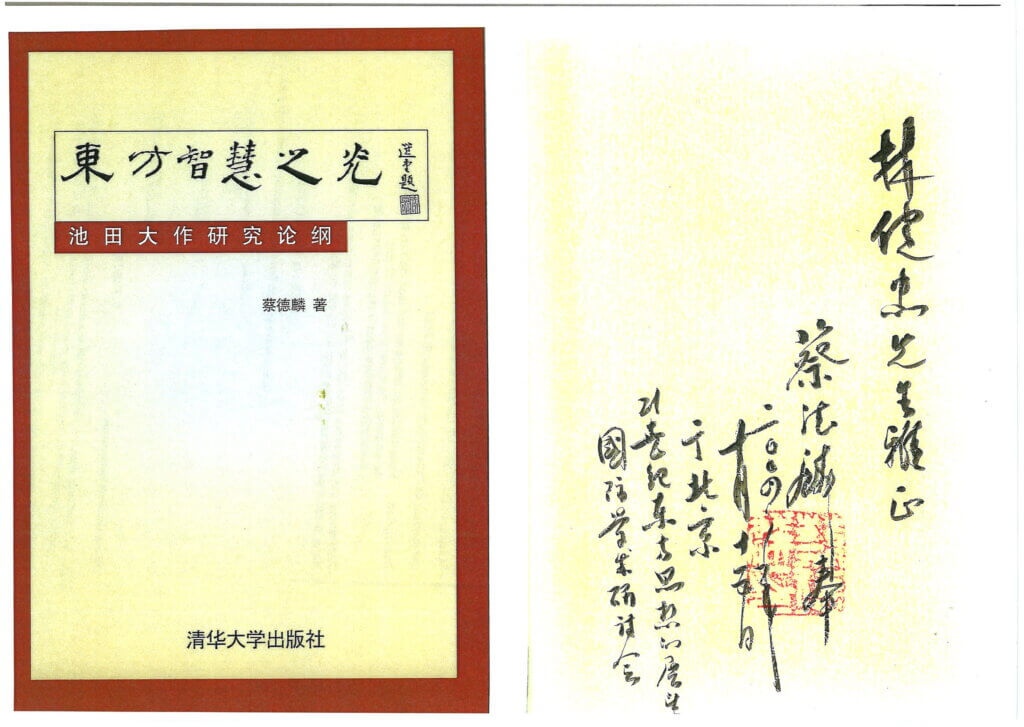 東方智慧之光
選堂題
池田大作研究论纲
蔡德麟 著
清华大学出版社
林健忠先生雅正
蔡德麟 奉
二〇〇四
十月十 日
于北京
21世纪东方思想的展望
國际学术研讨会